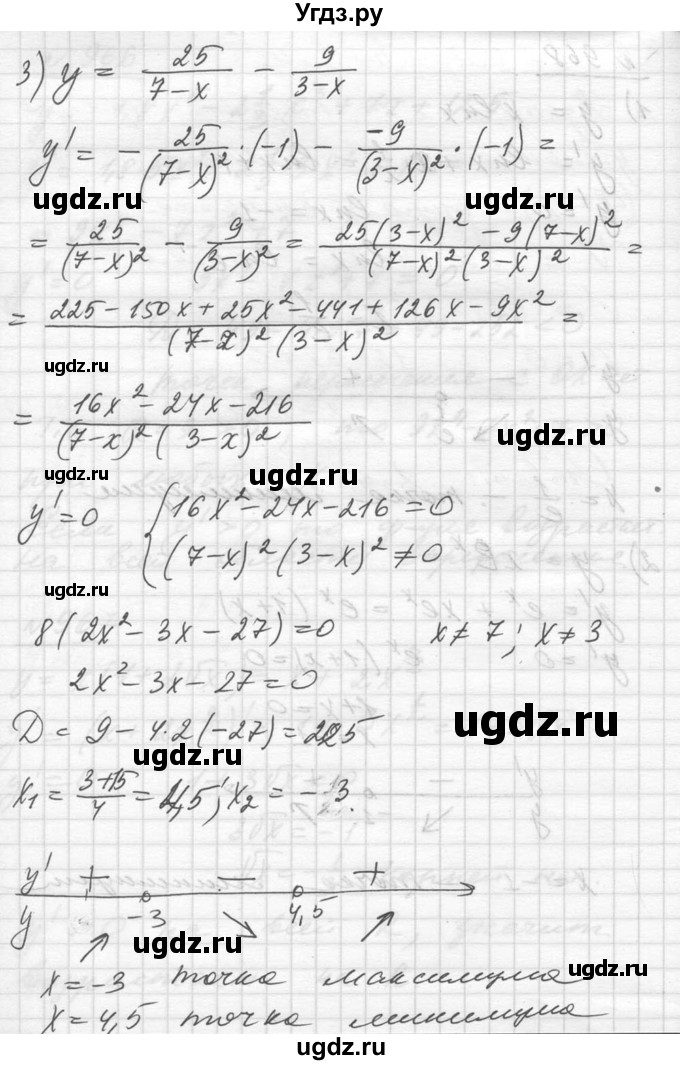 Угдз.ру
3) y = 25/(7-x) - 9/(3-x)
y' = - 25/(7-x)² · (-1) - -9/(3-x)² · (-1) =
ugdz.ru ugdz.ru
= 25/(7-x)² - 9/(3-x)² = (25(3-x)² - 9(7-x)²)/((7-x)²(3-x)²) =
= (225 - 150x + 25x² - 441 + 126x - 9x²)/((7-x)²(3-x)²) =
ugdz.ru
= (16x² - 24x - 216)/((7-x)²(3-x)²)
ugdz.ru
ugdz.ru
y' = 0 { 16x² - 24x - 216 = 0
(7-x)²(3-x)² ≠ 0
ugdz.ru
8(2x² - 3x - 27) = 0 x ≠ 7; x ≠ 3
2x² - 3x - 27 = 0
Д = 9 - 4·2(-27) = 225
ugdz.ru ugdz.ru
x₁ = (3+15)/4 = 4,5; x₂ = -3.
y' + - +
y -3 4,5
ugdz.ru
x = -3 точка максимума
ugdz.ru
x = 4,5 точка минимума
ugdz.ru